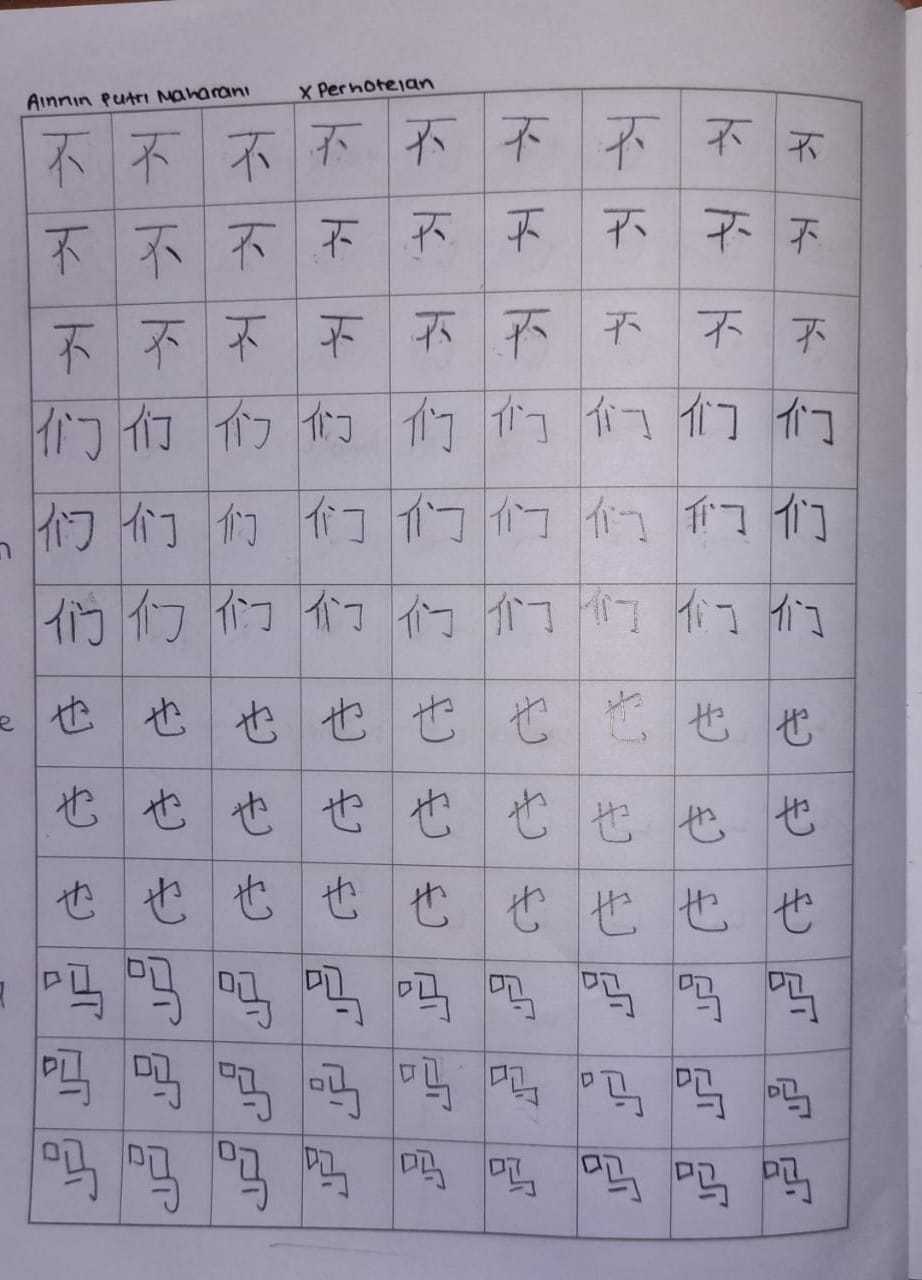 Ainnin Putri Maharani X Perhotelan
不 不 不 不 不 不 不 不 不
不 不 不 不 不 不 不 不 不
不 不 不 不 不 不 不 不 不
们 们 们 们 们 们 们 们 们
们 们 们 们 们 们 们 们 们
们 们 们 们 们 们 们 们 们
也 也 也 也 也 也 也 也 也
也 也 也 也 也 也 也 也 也
也 也 也 也 也 也 也 也 也
吗 吗 吗 吗 吗 吗 吗 吗 吗
吗 吗 吗 吗 吗 吗 吗 吗 吗
吗 吗 吗 吗 吗 吗 吗 吗 吗